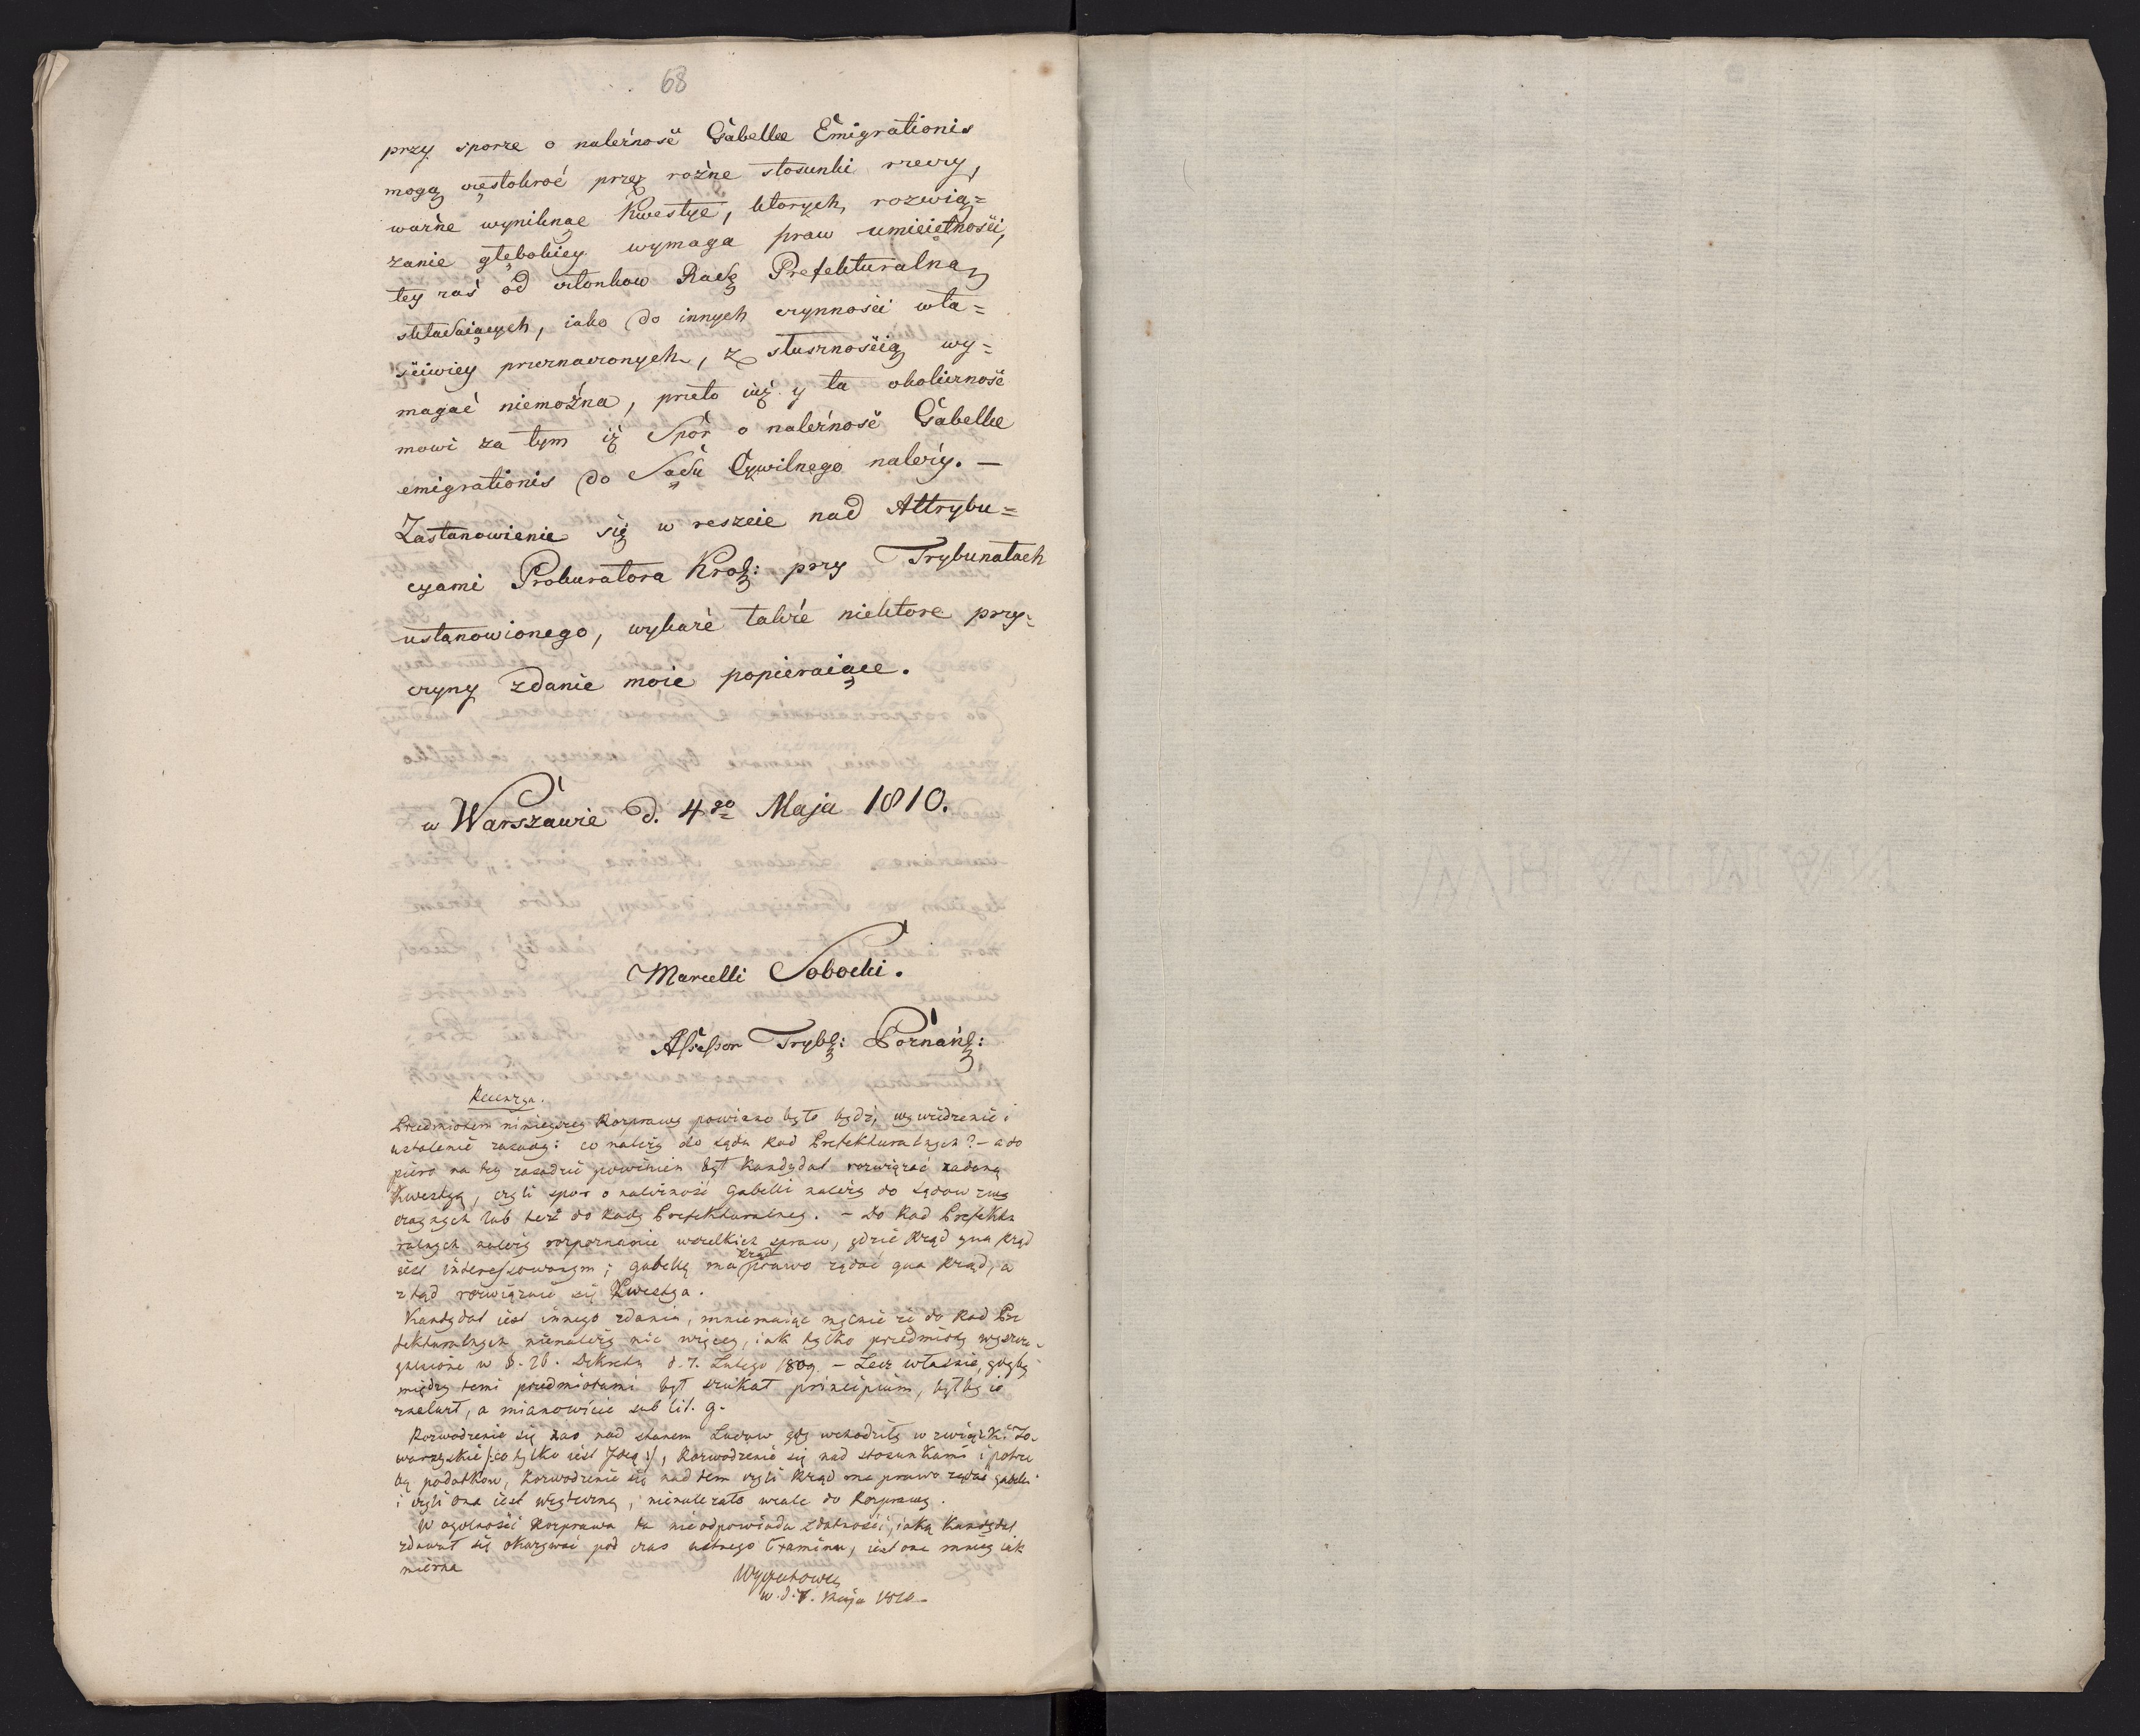 68
przy sporze o należność Gabellæ Emigrationis
mogą częstokroć przez rożne stosunki rzeczy,
ważne wyniknąć Kwestye, ktorych, rozwią=
zanie głębokiey wymaga praw umieiętności,
tey zaś od członkow Radę Prefekturalną
składaiących, iako do innych czynności wła=
ściwiey przeznaczonych, z słusznością wy=
magać niemożna, przeto iuż y ta okoliczność
mowi za tym iż Spór o należność Gabellæ
emigrationis do Sądu Cywilnego należy. —
Zastanowienie się w reszcie nad Attrybu=
cyami Prokuratora Krol: przy Trybunałach
ustanowionego, wykaże także niektore przy=
czyny zdanie moie popieraiące.
w Warszawie d. 4go Maja 1810.
Marcelli Sobocki.
Assessor Tryb: Poznańs:
Recenzya.
Przedmiotem ninieyszey Rozprawy powinno było bydź, wywiedzenie i
ustalenie zasady: co należy do Sądu Rad Prefekturalnych? – a do
piero na tey zasadzie powinien był Kandydat rozwiązać zadaną
Kwestyą, czyli spor o należność Gabelli należy do Sądow zwy
czaynych lub też do Rady Prefekturalney. – Do Rad Prefektu
ralnych należy rozpoznanie wszelkich spraw, gdzie Rząd qua Rząd
iest interessowanym; gabellą ma Rząd prawo żądać qua Rząd, a
ztąd rozwiązuie się Kwestya.
Kandydat iest innego zdania, mniemaiąc mylnie że do Rad Pre
fekturalnych nienależy nic więcey, iak tylko przedmioty wyszcze-
gulnione w §. 26. Dekretu d. 7. Lutego 1809. – Lecz właśnie, gdyby
między temi przedmiotami był szukał principium, byłby ie
znalazł, a mianowicie sub lit. g.
Rozwodzenie się nad stanem Ludow gdy wchodziły w związki To-
warzyskie /: co tylko iest Ideą :/, Rozwodzenie się nad stosunkami i potrze
bą podatkow, Rozwodzenie się nad tem czyli Rząd ma prawo żądać gabelli
i czyli ona iest użyteczną, nienależało wcale do Rozprawy.
W ogolności Rozprawa ta nie odpowiada zdatności, iaką Kandydat
zdawał się okazywać pod czas ustnego Examinu, iest ona mniey iak
mierna
w. d. 7. Maja 1810